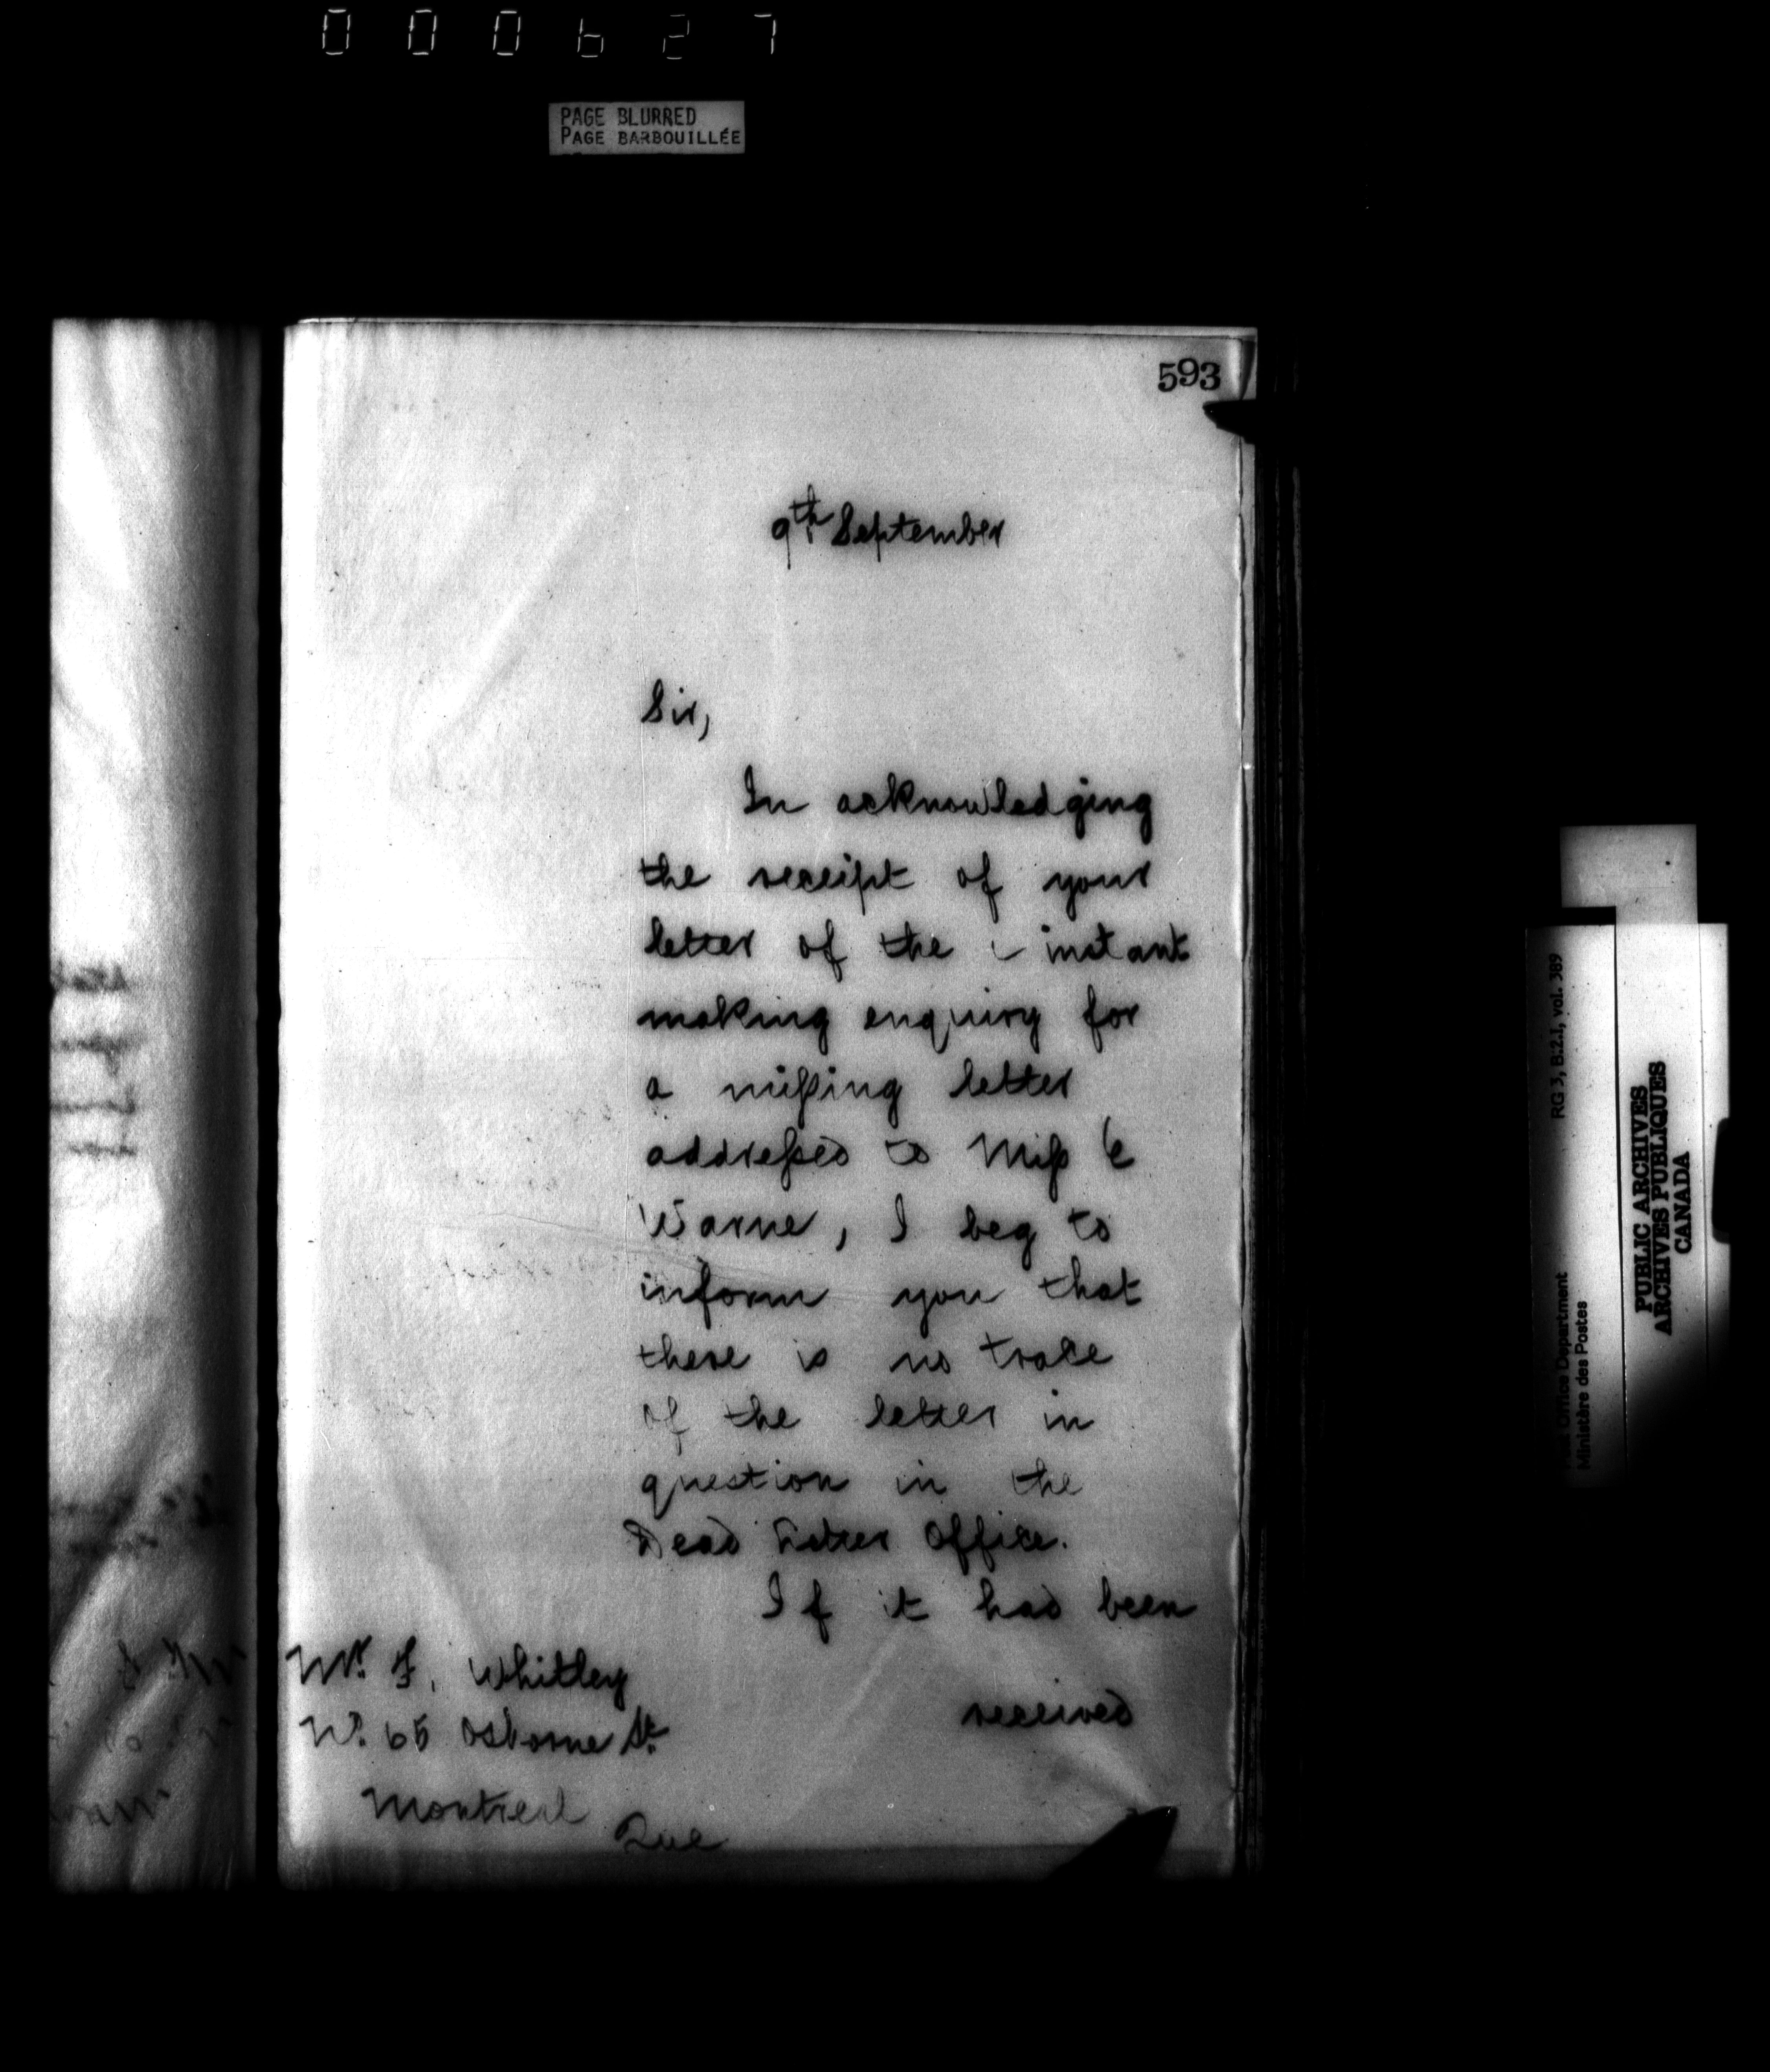 000627
PAGE BLURRED
PAGE BARBOUILLÉE
593
9th September
Sir,
In acknowledging
the receipt of your
letter of the instant
making enquiry for
a missing letter
addressed to Miss
Warne, I beg to
inform you that
there is no trace
of the letter in
question in the
Dead Letter Office.
If it had been
received
Mr. F. Whitley
No. 65 Osborne St.
Montreal
Que
RG 3, B.2.1, vol. 389
Office Department
Ministère des Postes
PUBLIC ARCHIVES
ARCHIVES PUBLIQUES
CANADA